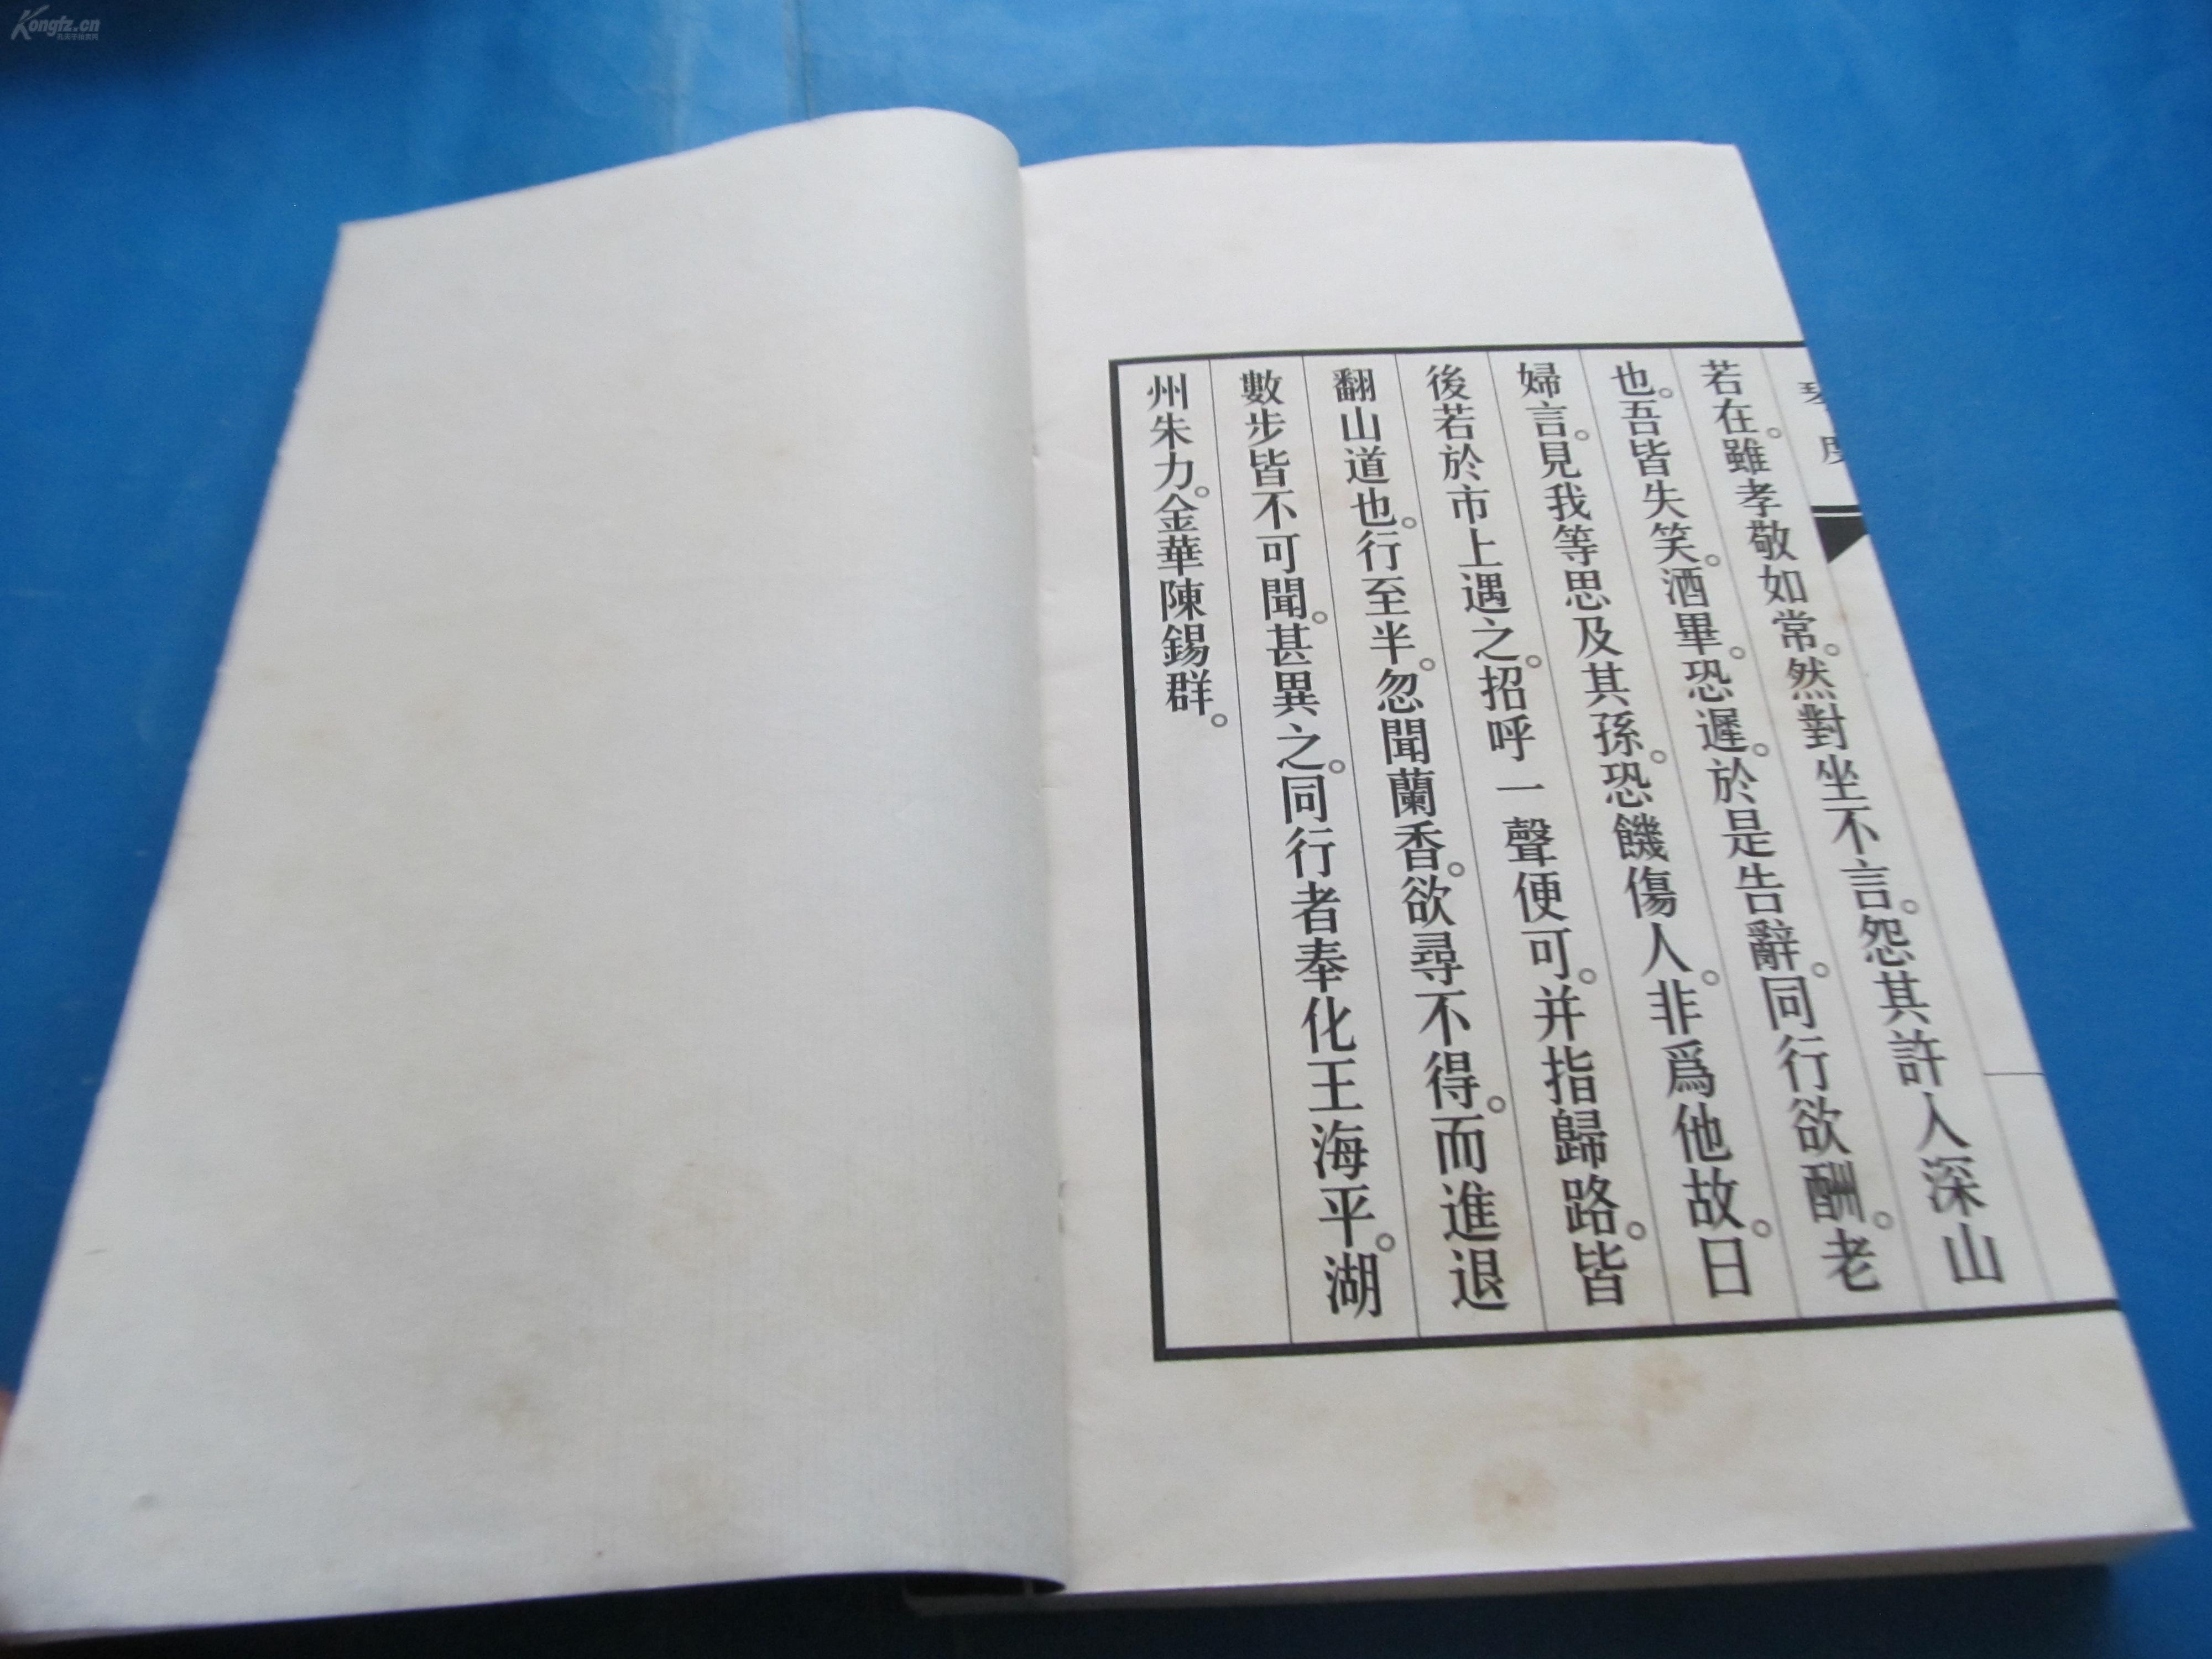 若在。雖孝敬如常。然對坐不言。怨其許人深山
也。吾皆失笑。酒畢。恐遲。於是告辭。同行欲酬。老
婦言。見我等思及其孫。恐饑傷人。非爲他故。曰
後若於市上遇之。招呼一聲便可。并指歸路。皆
翻山道也。行至半。忽聞蘭香。欲尋不得。而進退
數步皆不可聞。甚異之。同行者奉化王海平。湖
州朱力。金華陳錫群。
Kongfz.cn